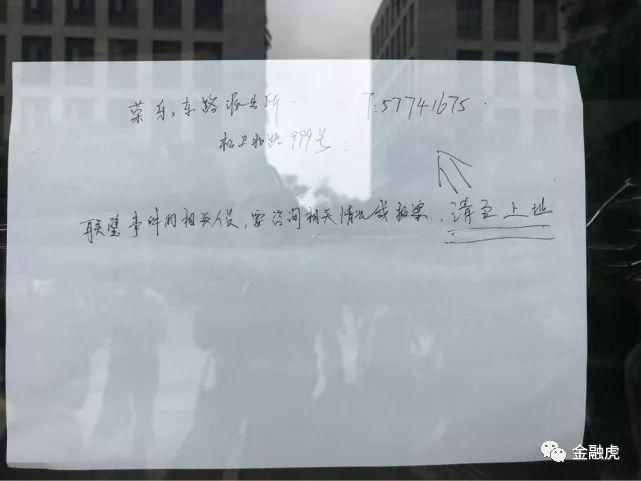 荣乐东路派出所 T:57741675
松卫北路999号
联璧事件的相关人员,要咨询相关情况或报案,请至上址
金融虎